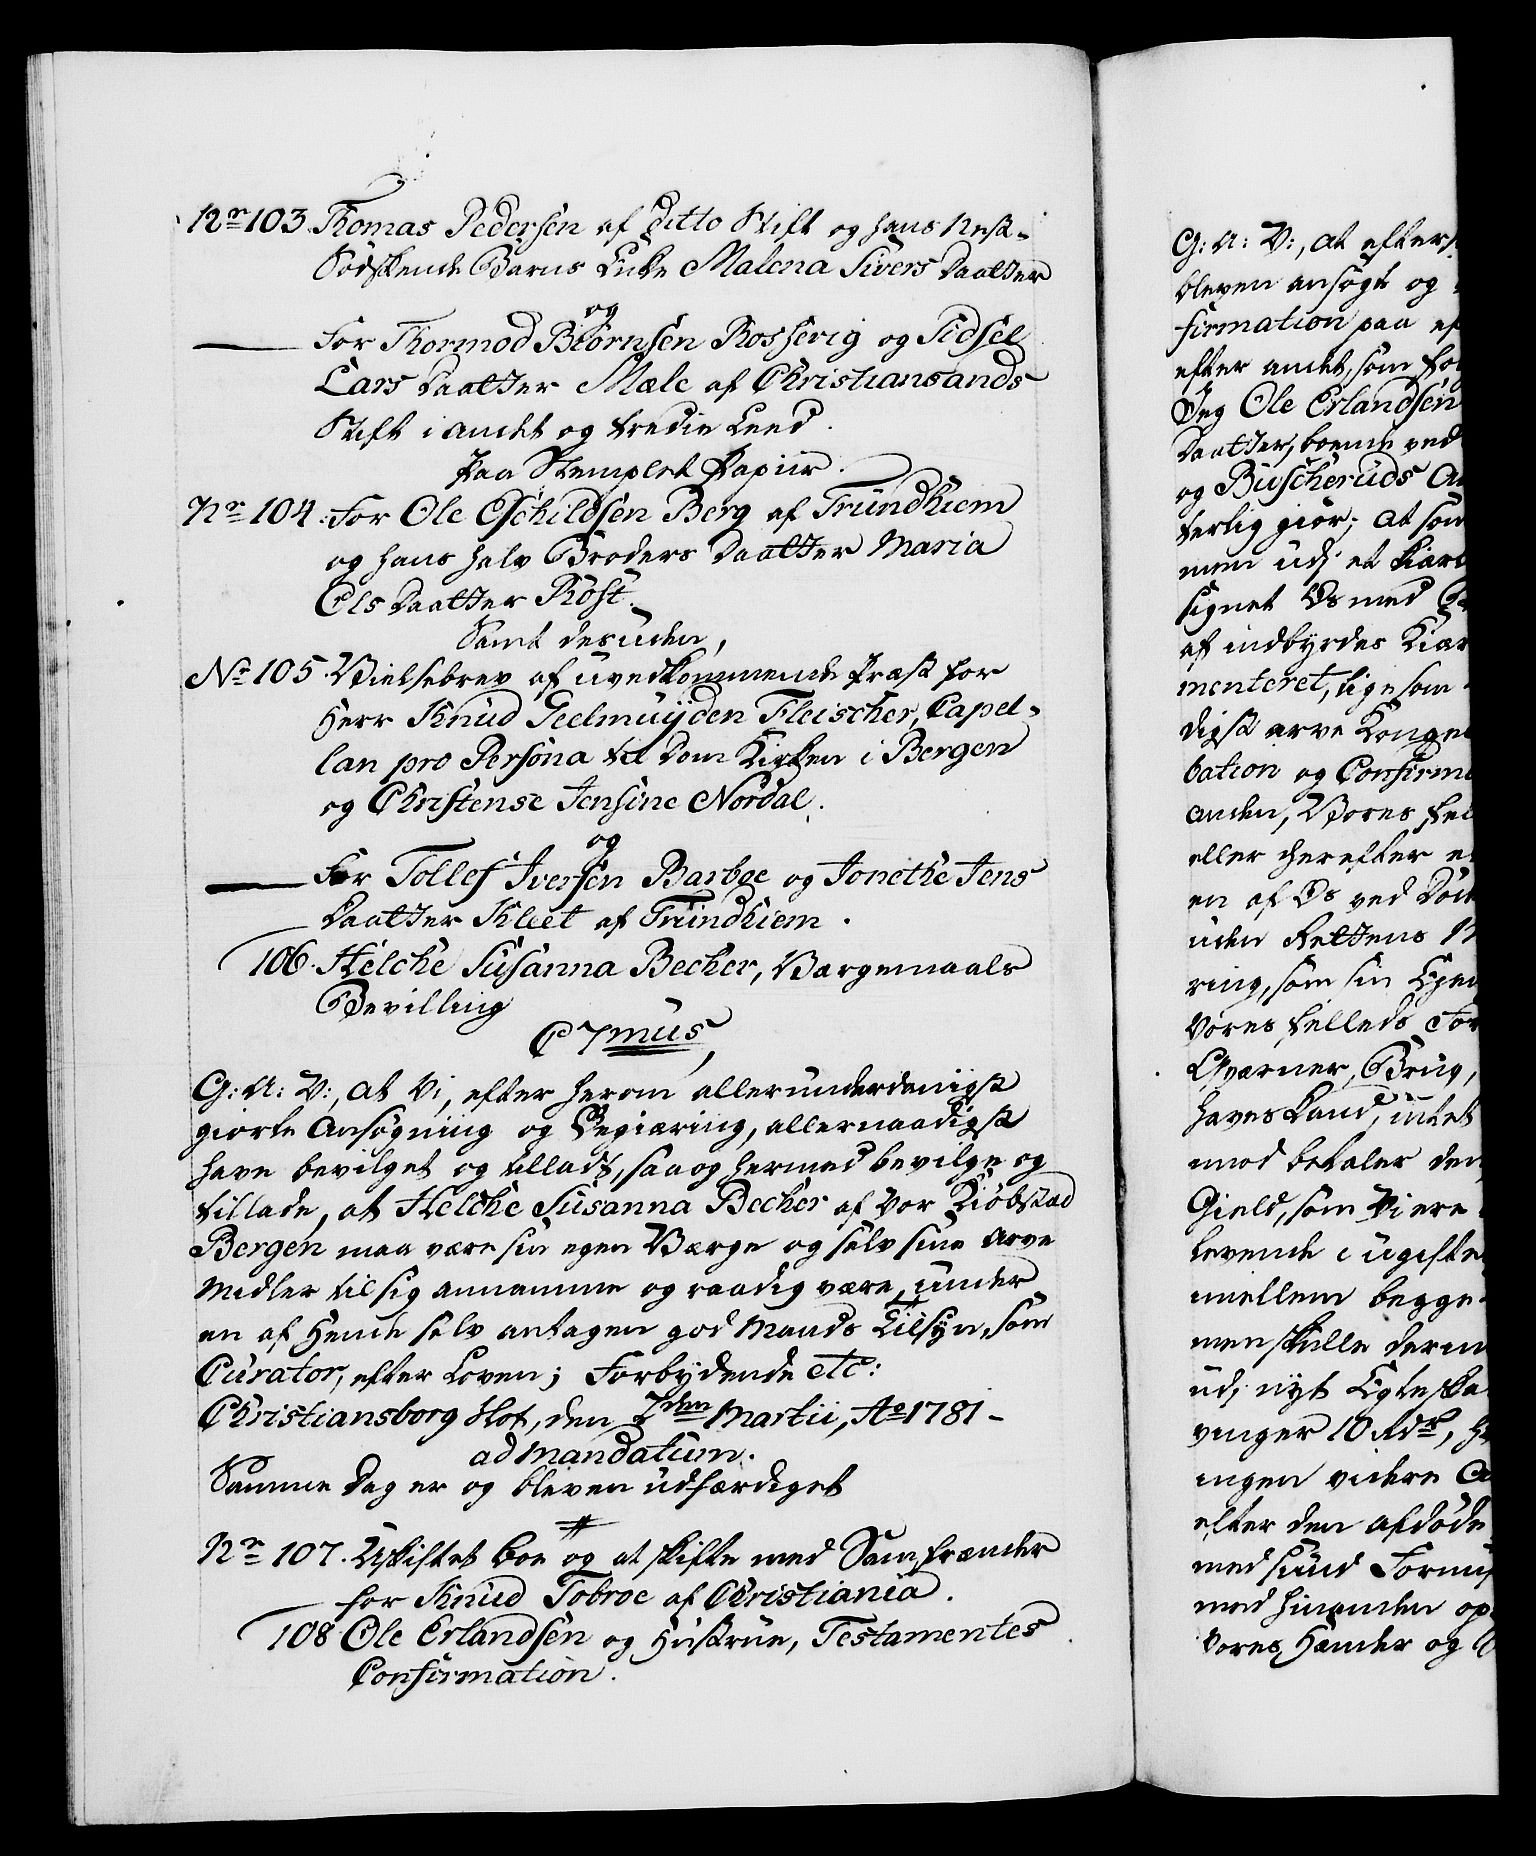 Nr 103. Thomas Pedersen af Ditto Stift og hans Næst-
Södskende Barns Enke Malena Sivers Daatter
og
For Thormod Biörnsen Rosservig og Sidsel
Lars Daatter Mæle af Christiansands
Stift i andet og tredie Leed.
Paa Stemplet Papiir.
Nr 104. For Ole Eschildsen Berg af Trundhiem
og hans halv Broders Daatter Maria
Ols Daatter Röst.
Samt desuden,
Nr 105. Vielsebrev af uvedkommende Præst for
Herr Knud Geelmuijden Fleischer, Capel-
lan pro Persona til Dom Kirken i Bergen
og Christense Jensine Nordal.
og
For Tollef Iversen Barboe og Jonethe Jens
Daatter Kleet af Trundhiem.
106. Helche Susanna Becher, Værgemaals
Bevilling
C 7mus
G: A: V:, at Vi, efter herom allerunderdanigst
giorte Ansögning og Begiæring, allernaadigst
have bevilget og tilladt, saa og hermed bevilge og
tillade, at Helche Susanna Becher af Vor Kiöbstad
Bergen maa være sin egen Værge og selv sine Arve
Midler til sig annamme og raadig være, under
en af Hende selv antagen god Mands Tilsyn, som
Curator, efter Loven; Forbydende etc:
Christiansborg Slot, den 7den Martii, Ao 1781-
ad mandatum.
Samme Dag er og bleven udfærdiget
Nr 107. Uskiftet Boe og at skifte med Samfrænder
for Knud Tobroe af Christiania.
108 Ole Erlandsen og Hustrue, Testamentes
Confirmation.
G: A: V:, at efters
bleven ansögt og
firmation paa ef
efter andet, som fö
Jeg Ole Erlandsen
Daatter, boende ved
og Buscheruds A
terlig giör; at som
men udi et kiær
signet Os med
af indbyrdes Kiær
menteret, ligesom
digst arve Konge
bation og Confirm
anden, Vores fæl
eller herefter e
en af Os ved Död
uden Rettens M
ring, som sin Ejen
vores fælleds For
Qværner, Brug,
haves kand, intet
mod betaler den
Gield, som Vi ere
levende i ugifte
imellem begge
men skulle derim
udi nyt Egteska
vinger 10 Rdr, h
ingen videre A
efter den afdöde
med sund Fornuf
med hinanden op
vores Hænder og